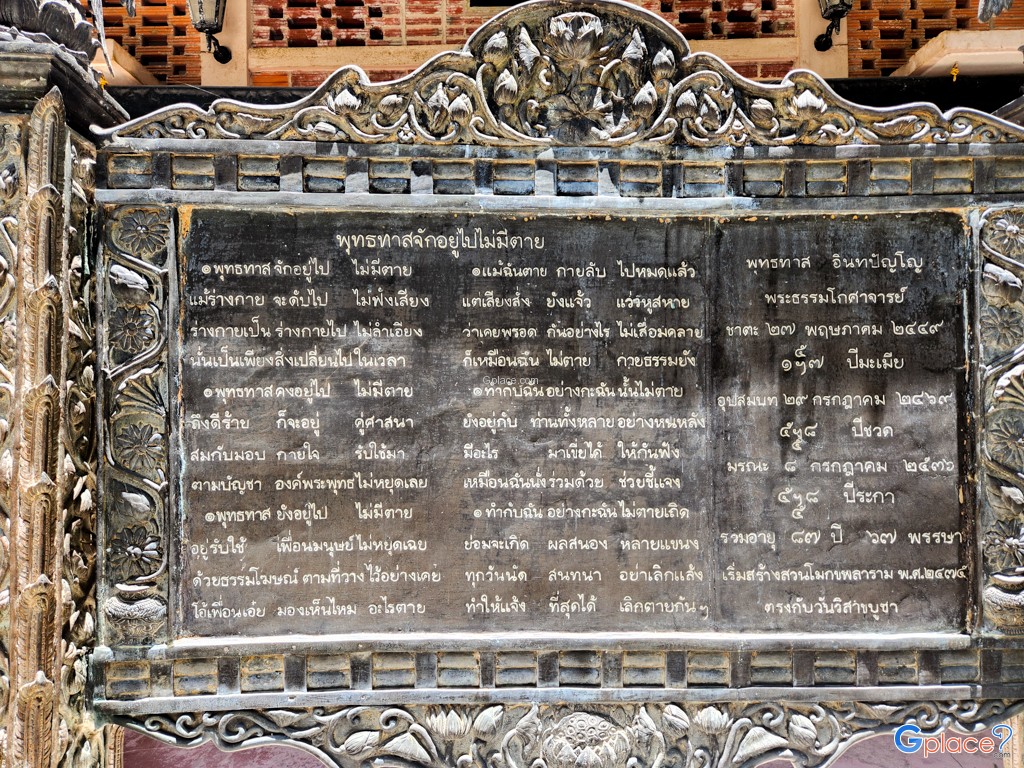 พุทธทาสจักอยู่ไปไม่มีตาย
๑พุทธทาส จักอยู่ไป ไม่มีตาย
แม้ร่างกาย จะดับไป ไม่ฟังเสียง
ร่างกายเป็น ร่างกายไป ไม่ลำเอียง
นั่นเป็นเพียง สิ่งเปลี่ยนไป ในเวลา
๑พุทธทาส คงอยู่ไป ไม่มีตาย
ถึงดีร้าย ก็จะอยู่ คู่ศาสนา
สมกับมอบ กายใจ รับใช้มา
ตามบัญชา องค์พระพุทธ ไม่หยุดเลย
๑พุทธทาส ยังอยู่ไป ไม่มีตาย
อยู่รับใช้ เพื่อนมนุษย์ ไม่หยุดเฉย
ด้วยธรรมโฆษณ์ ตามที่วาง ไว้อย่างเคย
โอ้เพื่อนเอ๋ย มองเห็นไหม อะไรตาย
๑แม้ฉันตาย กายลับ ไปหมดแล้ว
แต่เสียงสั่ง ยังแจ้ว แว่วหูสหาย
ว่าเคยพรอด กันอย่างไร ไม่เสื่อมคลาย
ก็เหมือนฉัน ไม่ตาย กายธรรมยัง
๑ทำกับฉัน อย่างกะฉัน นั้นไม่ตาย
ยังอยู่กับ ท่านทั้งหลาย อย่างหนหลัง
มีอะไร มาเขี่ยไค้ ให้กันฟัง
เหมือนฉันนั่ง ร่วมด้วย ช่วยชี้แจง
๑ทำกับฉัน อย่างกะฉัน ไม่ตายเถิด
ย่อมจะเกิด ผลสนอง หลายแขนง
ทุกวันนัด สนทนา อย่าเลิกแล้ง
ทำให้แจ้ง ที่สุดได้ เลิกตายกัน ฯ
พุทธทาส อินทปัญโญ
พระธรรมโกศาจารย์
ชาตะ ๒๗ พฤษภาคม ๒๔๔๙
ปีมะเมีย
อุปสมบท ๒๙ กรกฎาคม ๒๔๖๙
ปีชวด
มรณะ ๘ กรกฎาคม ๒๕๓๖
ปีระกา
รวมอายุ ๘๗ ปี ๖๗ พรรษา
เริ่มสร้างสวนโมกขพลาราม พ.ศ.๒๔๗๕
ตรงกับวันวิสาขบูชา
Gplace.com
Gplace.com